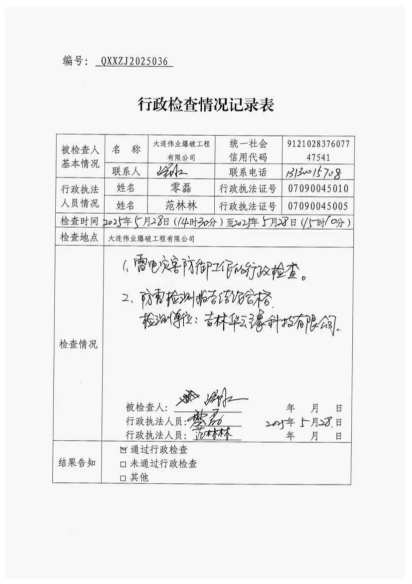 编号: QXXZJ2025036
行政检查情况记录表
被检查人基本情况 名称 大连伟业爆破工程有限公司 统一社会信用代码 912102837607747541
联系人 联系电话
行政执法人员情况 姓名 零磊 行政执法证号 07090045010
姓名 范林林 行政执法证号 07090045005
检查时间 2025年5月28日(14时30分)至2025年5月28日(15时10分)
检查地点 大连伟业爆破工程有限公司
检查情况
1、雷电灾害防御工作的行政检查。
2、防雷检测报告结论合格.
检测单位:吉林华云缘科技有限公司。
被检查人: 年 月 日
行政执法人员:零磊 2025年5月28日
行政执法人员:范林林
结果告知
☑ 通过行政检查
□ 未通过行政检查
□ 其他